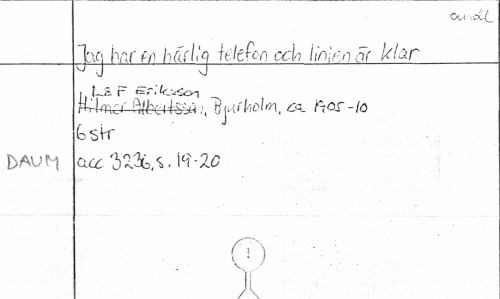 Jag har en härlig telefon och linjen är klar
L & F Eriksson
Hilmer Albertsson, Bjurholm, ca 1905-10
6 str
DAUM acc 3236, s. 19-20